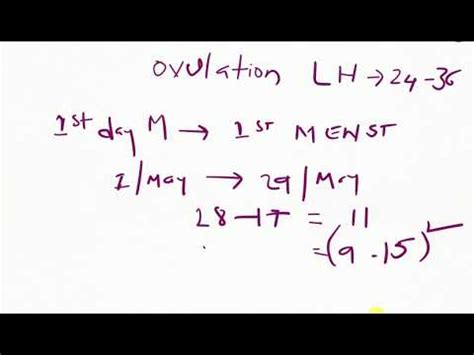 ovulation LH → 24-36
1st day M → 1ST MENST
1/May → 29/May
28-17 = 11
= (9-15)